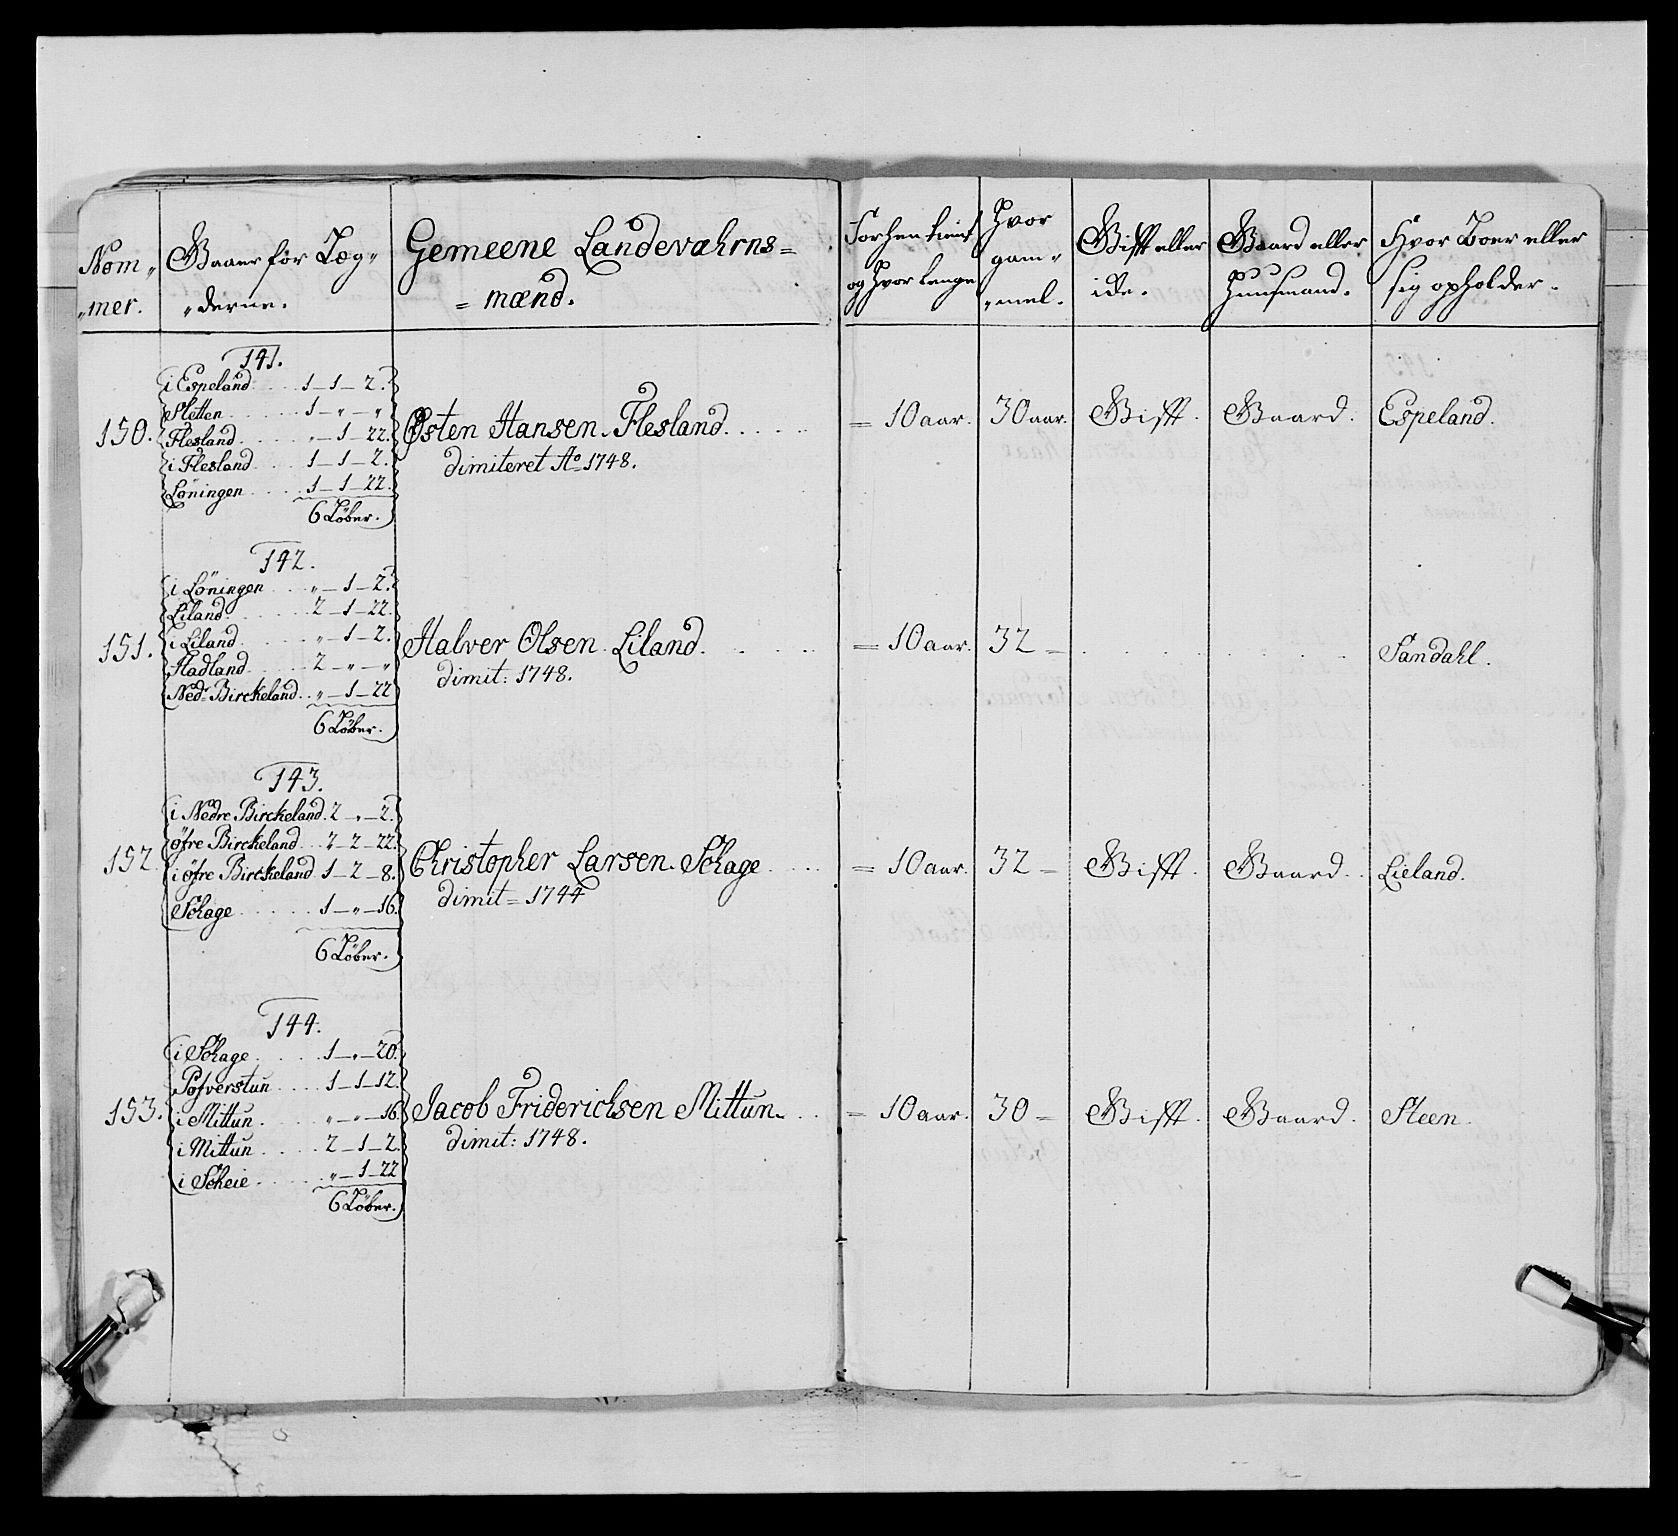 Nom„ „mer.
Gaaer för Læg„ „derne.
Gemeene Landeværns= =mænd.
Forhen tient og Hvor lenge
Hvor gam„ „mel.
Gifft eller ide.
Gaard eller Huusmand.
Hvor Boer eller sig opholder.
141.
i Espeland 1 – 1 – 2.
Sletten 1 – „ – „
Flesland „ – 1 – 22.
i Flesland 1 – 1 – 2.
Löningen 1 – 1 – 22.
6 Löber.
150. Østen Hansen Flesland = 10 aar. 30 aar. Gifft. Gaard. Espeland.
dimiteret Aº 1748.
142.
i Löningen „ – 1 – 2.
Liland 2 – 1 – 22.
i Liland „ – 1 – 2.
Hadland 2 – „ – „
Nedr Birckeland „ – 1 – 22
6 Löber.
151. Halver Olsen Liland = 10 aar. 32 – Sandahl.
dimit: 1748.
143.
i Nedre Birckeland 2 – „ – 2.
öfre Birckeland 2 – 2 – 22.
i öfre Birckeland 1 – 2 – 8.
Schage 1 – „ – 16.
6 Löber.
152. Christopher Larsen Schage = 10 aar. 32 – Gifft. Gaard. Lieland.
dimit = 1744
144.
i Schage 1 – „ – 20.
Pofverstun 1 – 1 – 12.
i Mittun „ – „ – 16.
i Mittun 2 – 1 – 2.
i Scheie „ – 1 – 22
6 Löber.
153. Jacob Friderichsen Mittun = 10 aar. 30 – Gifft. Gaard. Steen.
dimit: 1748.